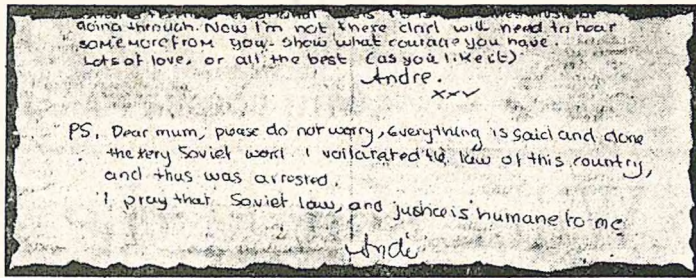 going through. Now I'm not there clard will need to hear
some more from you. Show what courage you have.
Lots of love, or all the best (as you like it)
Andre.
xxv
PS, Dear mum, please do not worry, everything is said and done
the very Soviet word. I the law of this country,
and thus was arrested.
I pray that Soviet law, and justice is humane to me
Andre